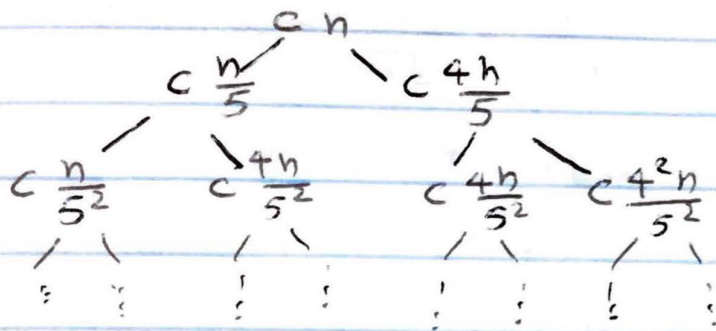 c n
c n/5 c 4n/5
c n/5² c 4n/5² c 4n/5² c 4²n/5²
⋮ ⋮ ⋮ ⋮ ⋮ ⋮ ⋮ ⋮